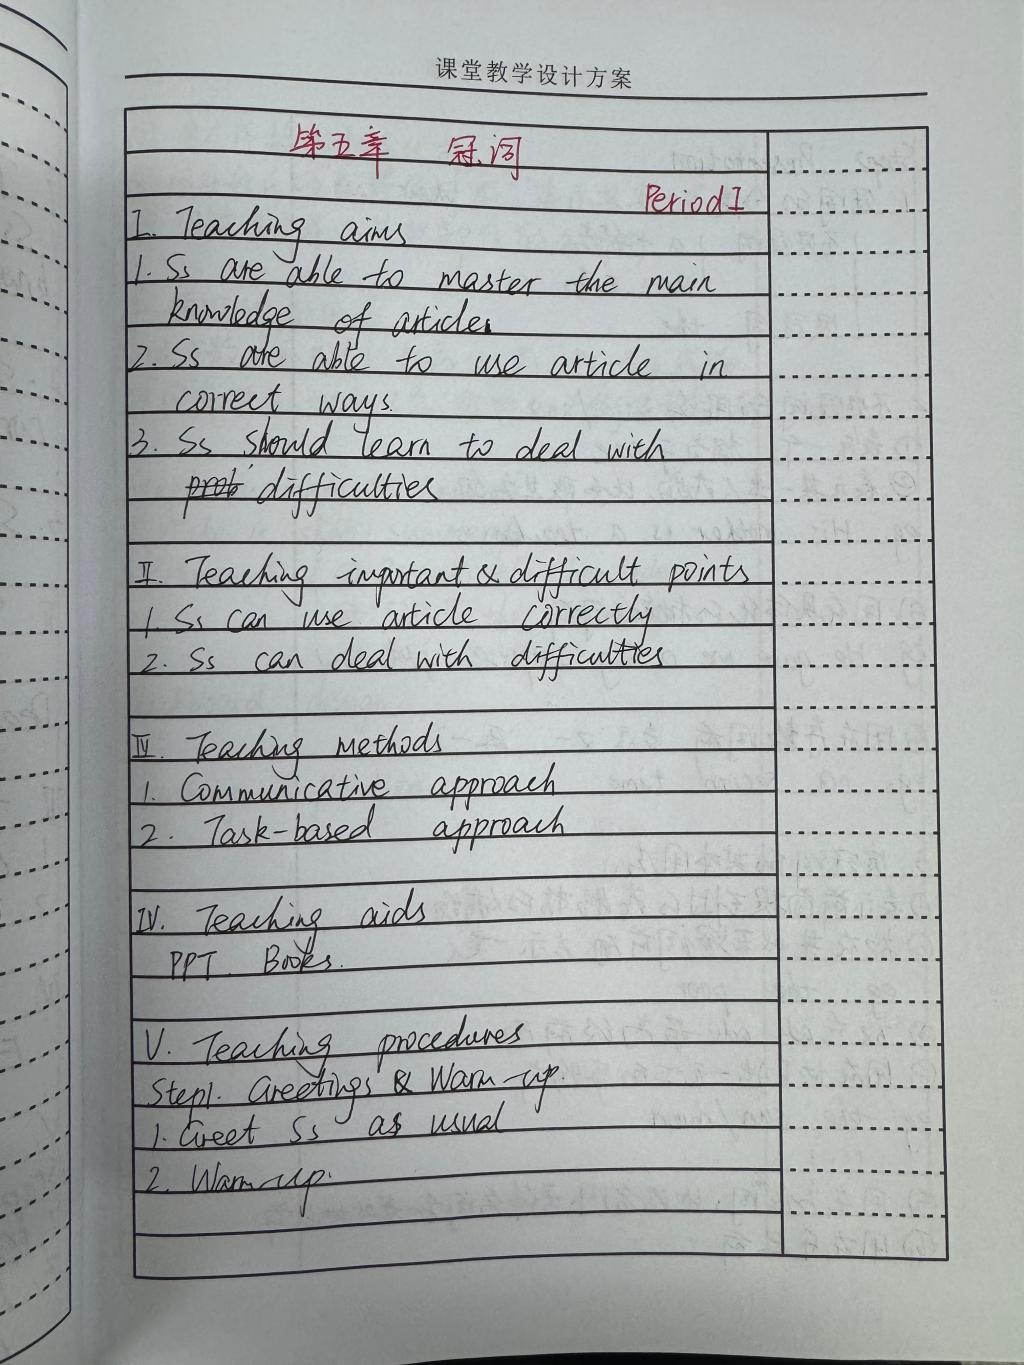 课堂教学设计方案
第五章 冠词
Period I
I. Teaching aims
1. Ss are able to master the main
knowledge of article.
2. Ss are able to use article in
correct ways.
3. Ss should learn to deal with
prob difficulties
II. Teaching important & difficult points
1. Ss can use article correctly
2. Ss can deal with difficulties
IV. Teaching methods
1. Communicative approach
2. Task-based approach
IV. Teaching aids
PPT. Books.
V. Teaching procedures
Step1. Greetings & Warm-up.
1. Greet Ss as usual
2. Warm-up.